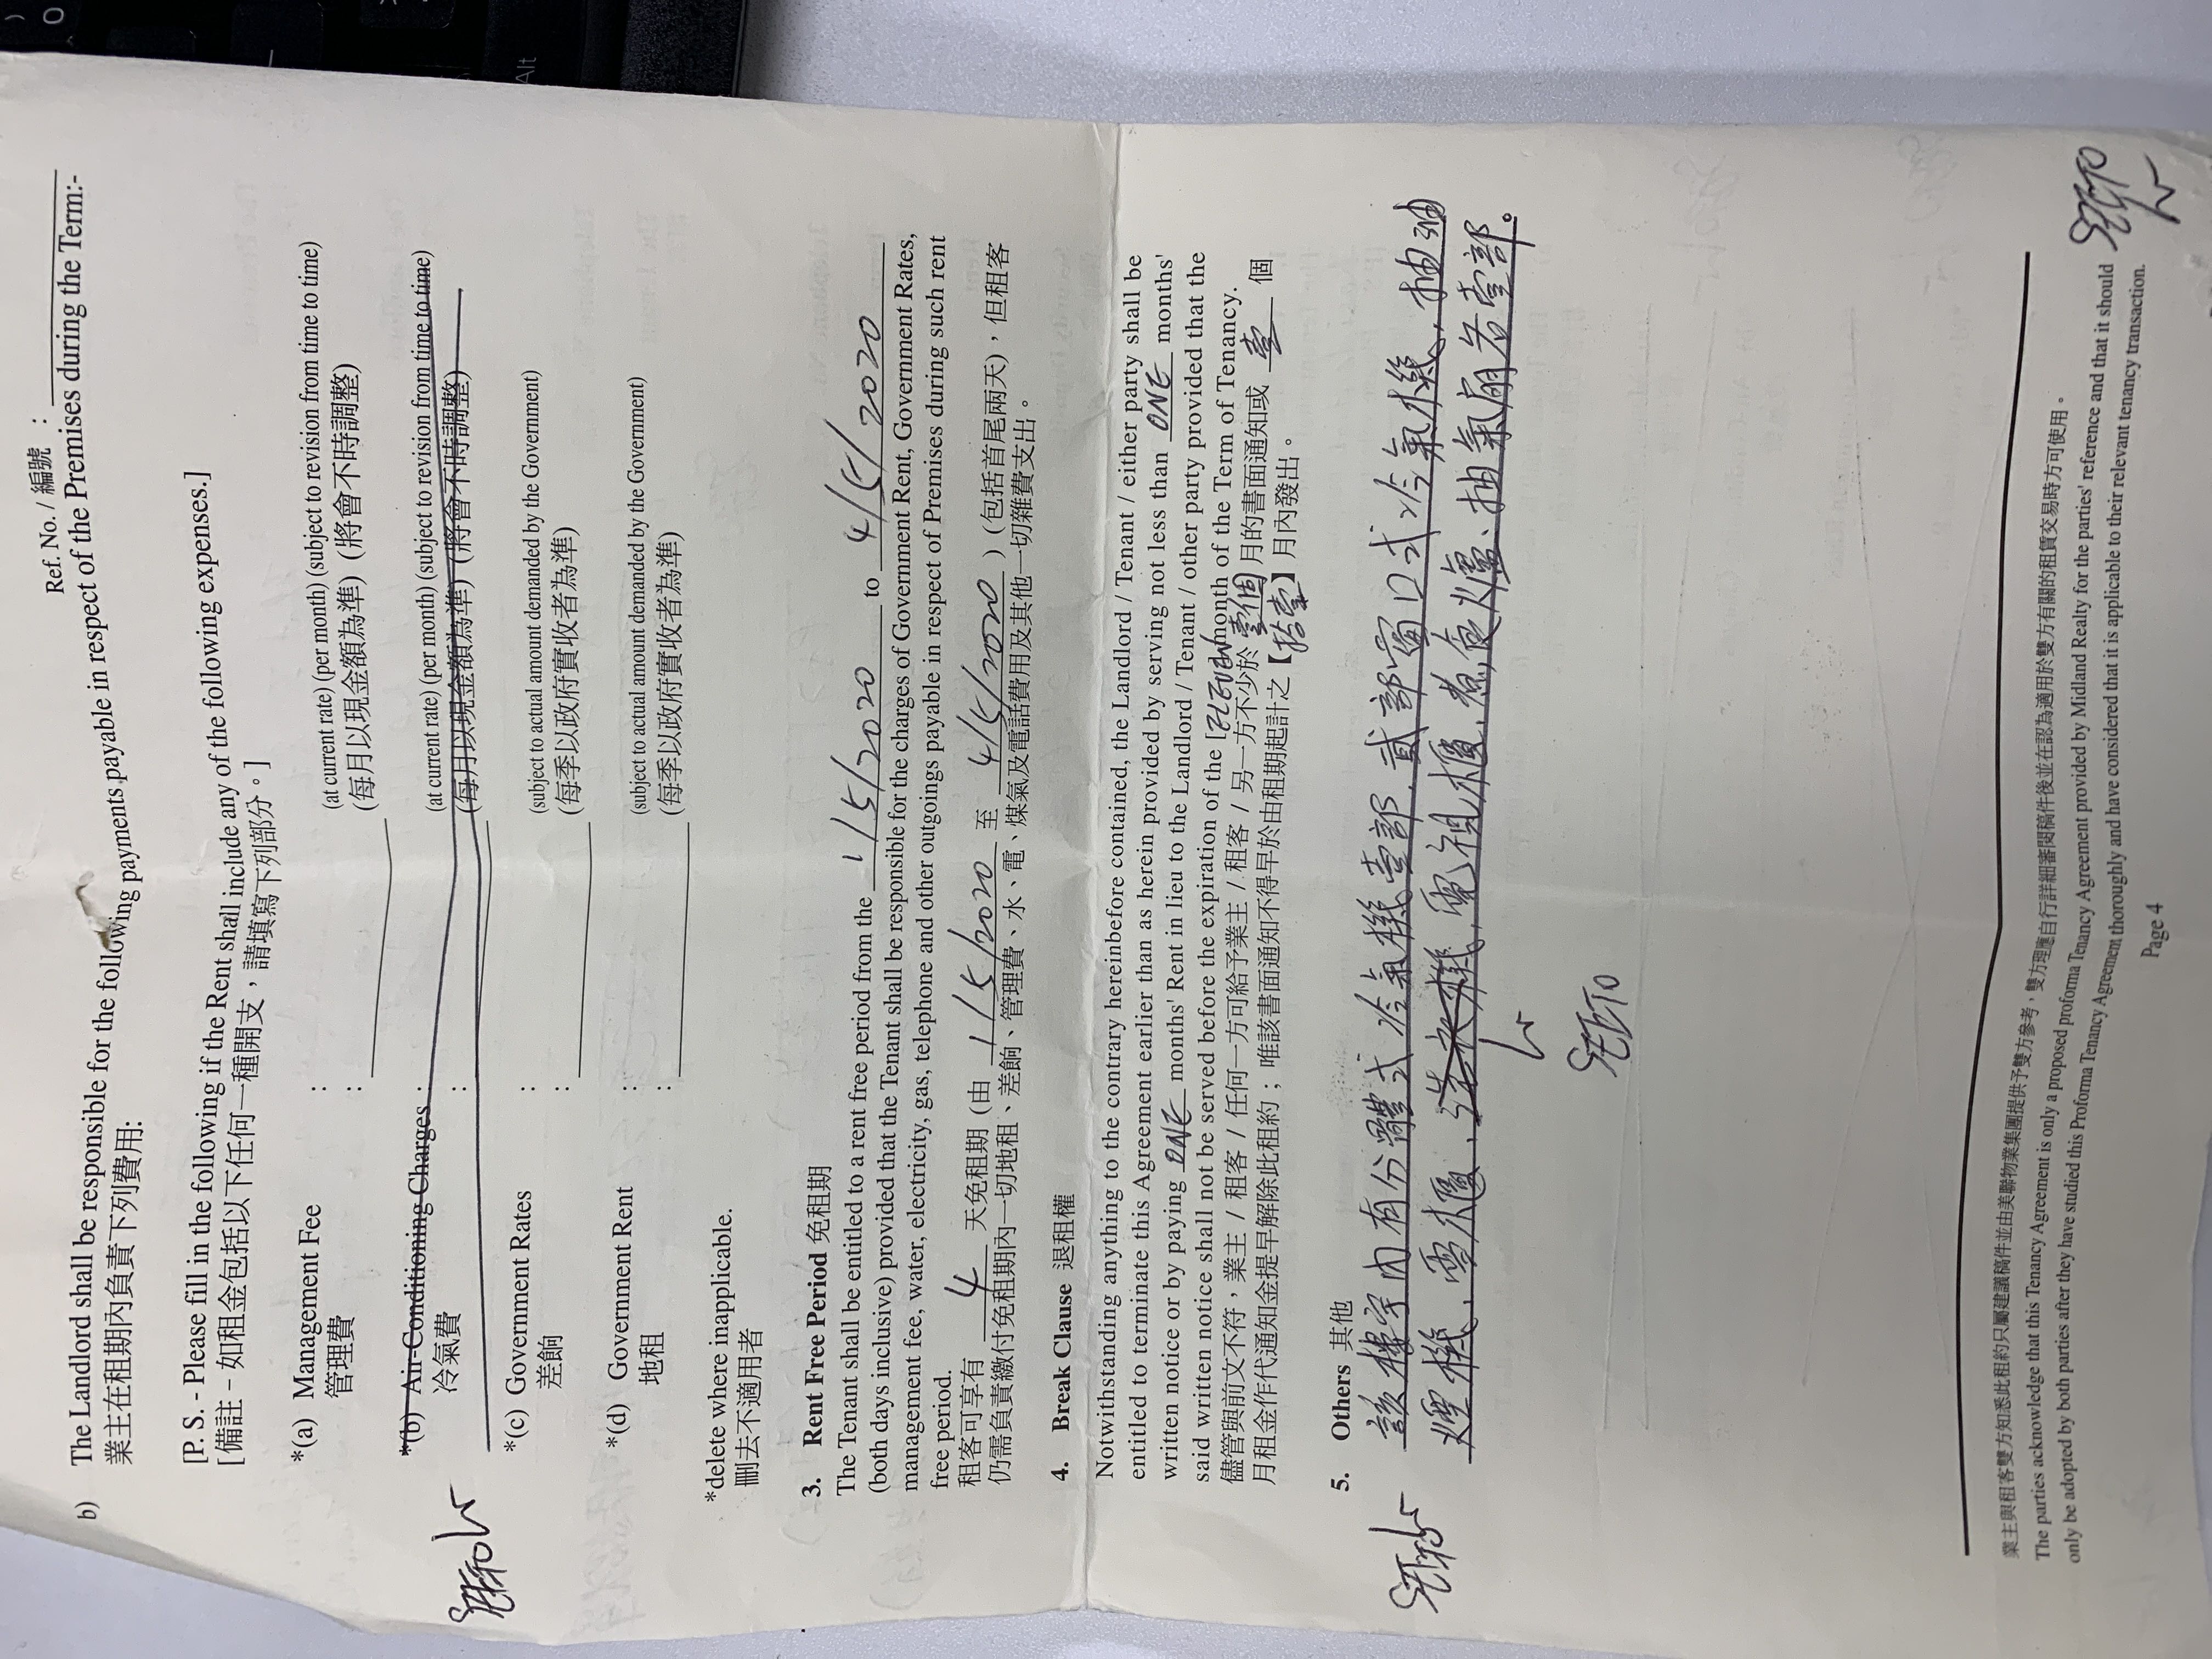 Ref. No. / 編號 :
b) The Landlord shall be responsible for the following payments payable in respect of the Premises during the Term:-
業主在租期內負責下列費用:
[P. S. - Please fill in the following if the Rent shall include any of the following expenses.]
[備註 – 如租金包括以下任何一種開支，請填寫下列部分。]
*(a) Management Fee : (at current rate) (per month) (subject to revision from time to time)
管理費 : (每月以現金額為準) (將會不時調整)
*(b) Air-Conditioning Charges : (at current rate) (per month) (subject to revision from time to time)
冷氣費 : (每月以現金額為準) (將會不時調整)
*(c) Government Rates : (subject to actual amount demanded by the Government)
差餉 : (每季以政府實收者為準)
*(d) Government Rent : (subject to actual amount demanded by the Government)
地租 : (每季以政府實收者為準)
*delete where inapplicable.
刪去不適用者
3. Rent Free Period 免租期
The Tenant shall be entitled to a rent free period from the 1/5/2020 to 4/5/2020
(both days inclusive) provided that the Tenant shall be responsible for the charges of Government Rent, Government Rates,
management fee, water, electricity, gas, telephone and other outgoings payable in respect of Premises during such rent
free period.
租客可享有 4 天免租期 (由 1/5/2020 至 4/5/2020 ) (包括首尾兩天)，但租客
仍需負責繳付免租期內一切地租、差餉、管理費、水、電、煤氣及電話費用及其他一切雜費支出。
4. Break Clause 退租權
Notwithstanding anything to the contrary hereinbefore contained, the Landlord / Tenant / either party shall be
entitled to terminate this Agreement earlier than as herein provided by serving not less than ONE months'
written notice or by paying ONE months' Rent in lieu to the Landlord / Tenant / other party provided that the
said written notice shall not be served before the expiration of the [ELEVEN]month of the Term of Tenancy.
儘管與前文不符，業主 / 租客 / 任何一方可給予業主 / 租客 / 另一方不少於 壹個 月的書面通知或 壹 個
月租金作代通知金提早解除此租約；唯該書面通知不得早於由租期起計之【拾壹】月內發出。
5. Others 其他
該樓宇內有份體式冷氣機壹部, 貳部窗口式冷氣機, 抽油
煙機、雪櫃、洗衣機, 電視櫃, 煮食爐、抽氣扇各壹部。
SEETO
SEETO
SEETO
業主與租客雙方知悉此租約只屬建議稿件並由美聯物業集團提供予雙方參考，雙方理應自行詳細審閱稿件後並在認為適用於雙方有關的租賃交易時方可使用。
The parties acknowledge that this Tenancy Agreement is only a proposed proforma Tenancy Agreement provided by Midland Realty for the parties' reference and that it should
only be adopted by both parties after they have studied this Proforma Tenancy Agreement thoroughly and have considered that it is applicable to their relevant tenancy transaction.
SEETO
Page 4
Alt